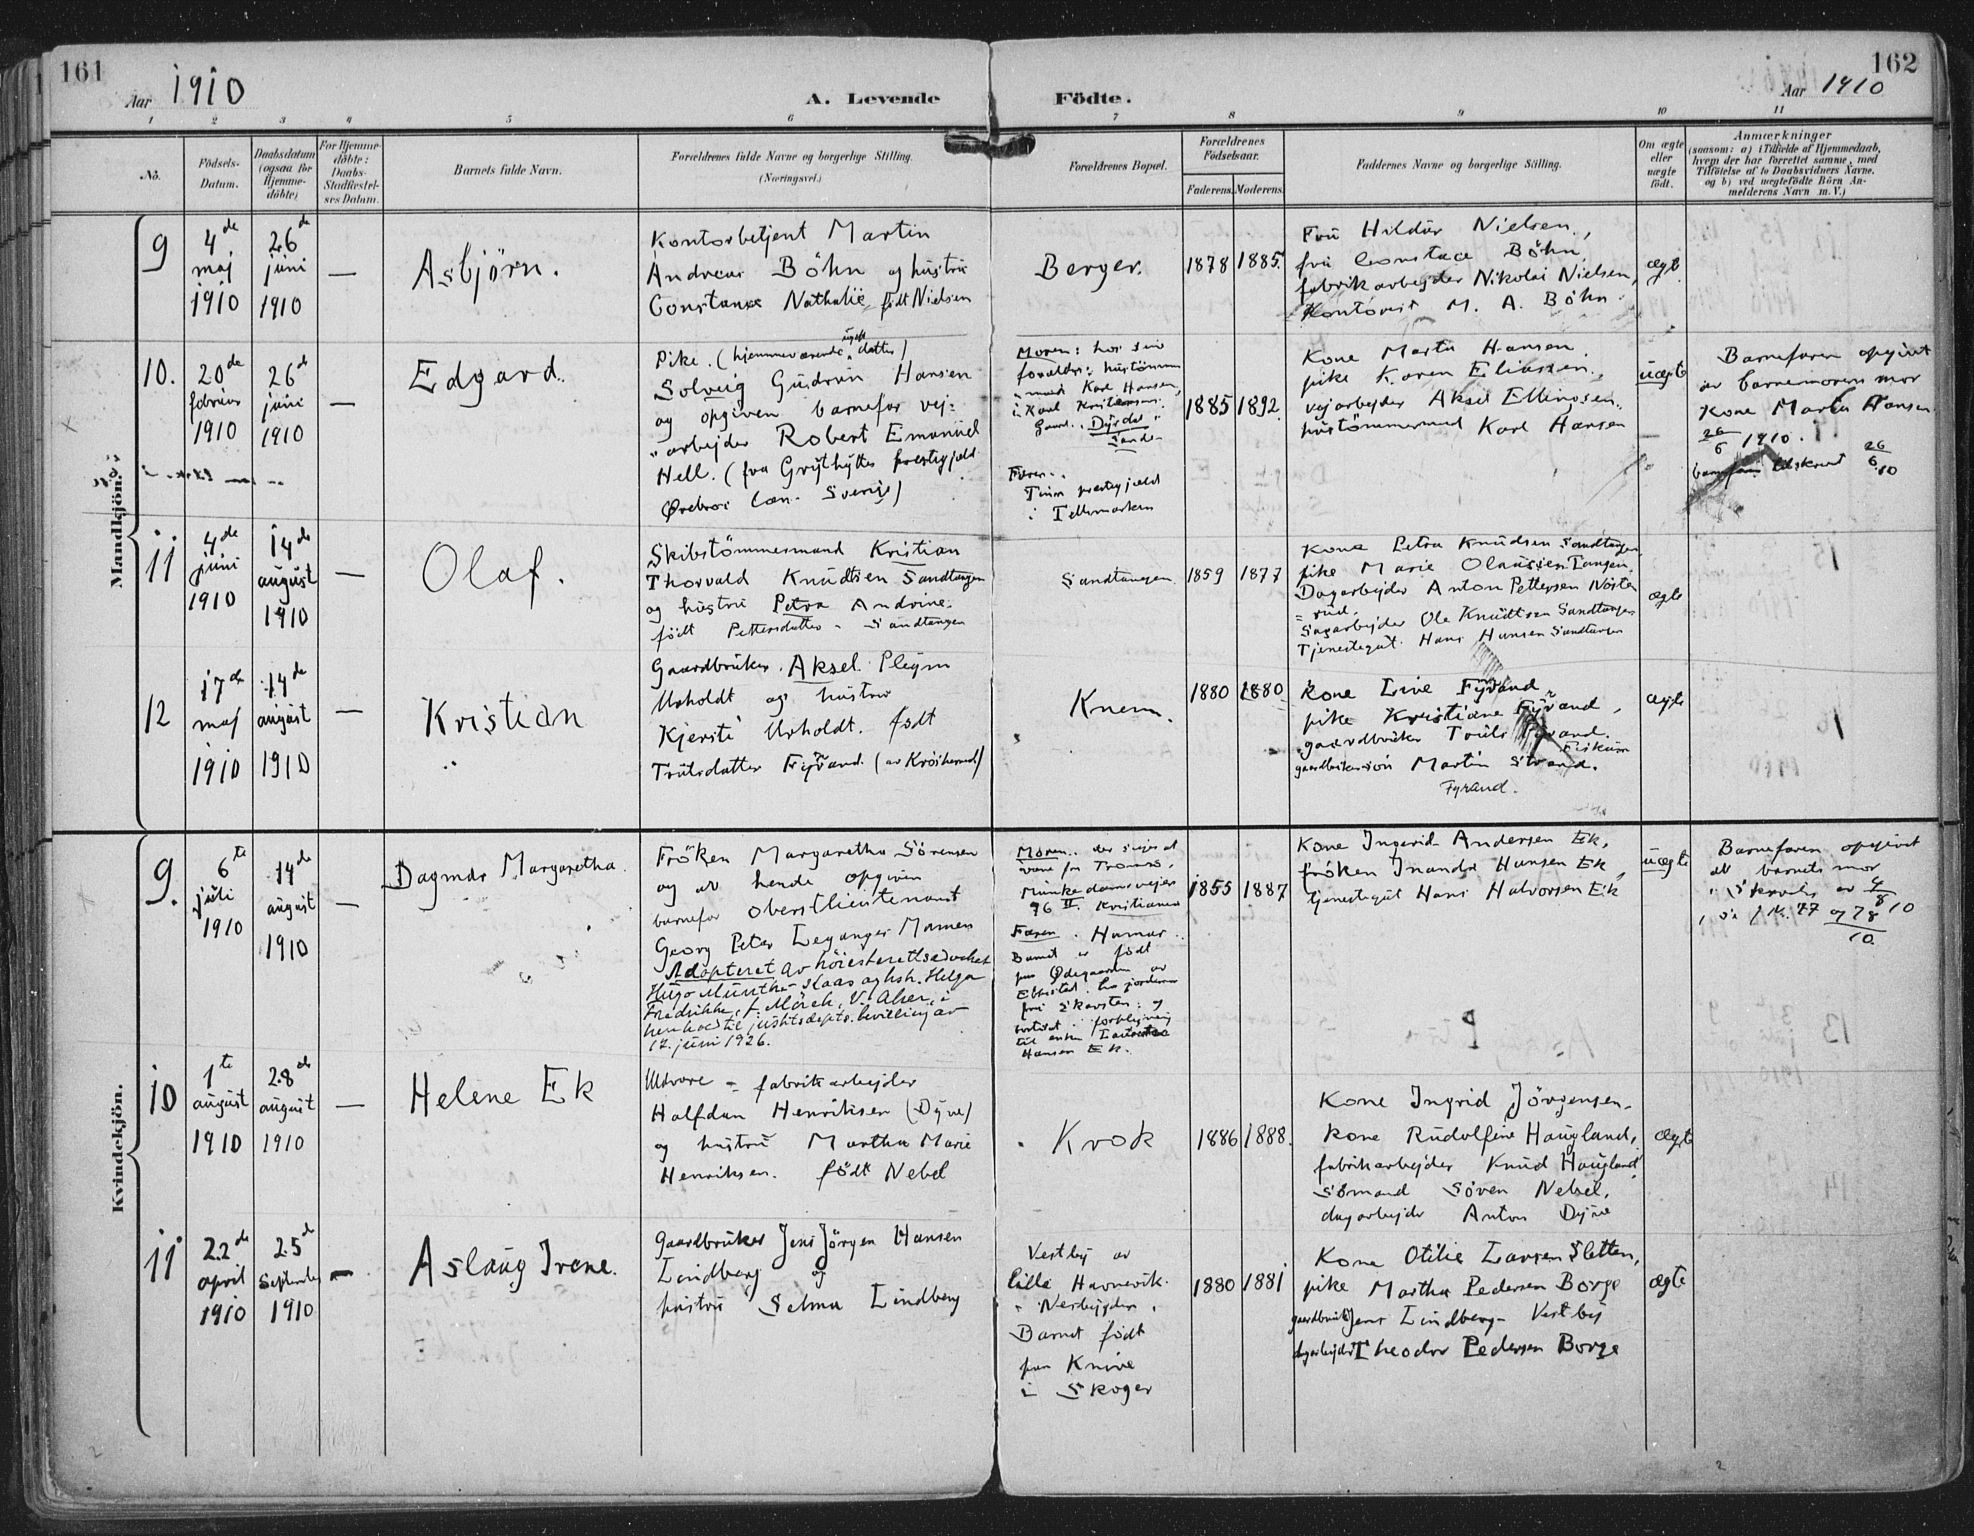 161
Aar 1910
A. Levende Födte.
162
Aar 1910
1 2 3 4 5 6 7 8 9 10 11
No.
Födsels-Datum.
Daabsdatum (ogsaa for Hjemme-döbte)
For Hjemme-döbte: Daabs-Stadfæstel-ses Datum.
Barnets fulde Navn.
Forældrenes fulde Navne og borgerlige Stilling.
(Næringsvei.)
Forældrenes Bopæl.
Forældrenes Födselsaar.
Faderens. Moderens.
Faddernes Navne og borgerlige Stilling.
Om ægte eller uægte födt.
Anmærkninger
(saasom: a) i Tilfælde af Hjemmedaab,
hvem der har forrettet samme, med
Tilföielse af to Daabsvidners Navne,
og b) ved uægtefödte Börn An-
melderens Navn m. V.)
Mandkjön.
9
4de maj 1910
26de juni 1910
—
Asbjörn.
Kontorbetjent Martin
Andreas Böhn og hustru
Constance Nathalie født Nielsen
Berger.
1878 1885.
Fru Hildur Nielsen,
fru Constace Böhn
fabrikarbejder Nikolai Nielsen,
Kontorist M. A. Böhn
ægte
10.
20de februar 1910
26de juni 1910
—
Edgard.
Pike. (hjemmeværende ugift datter)
Solveig Gudrun Hansen
og opgiven barnefar vej-
arbejder Robert Emanuel
Hell. (fra Grythytte prestegjeld
Ørebro læn. Sverige)
Moren: hos sine
forældre: hustömmer
mand Karl Hansen,
Dyrdal
Sande
Faren:
Tinn prestegjeld
i Telemarken
1885 1892.
Kone Marta Hansen,
pike Karen Eliassen,
vejarbejder Aksel Ellingsen.
hustömmermand Karl Hansen
uægte
Barnefaren opgivet
av barnemorens mor
Kone Marta Hansen
26/6 1910.
barnefaren tilskrevet 26/6 10
11
4de juni 1910
14de august 1910
—
Olaf.
Skibstömmermand Kristian
Thorvald Knudtsen Sandtangen
og hustru Petra Andrine.
födt Pettersdatter - Sandtangen
Sandtangen
1859 1877
Kone Petra Knudsen Sandtangen
pike Marie Olaussen Tangen.
Dagarbejder Anton Pettersen Nöste
rud.
Sagarbejder Ole Knudtsen Sandtangen
Tjenestegut Hans Hansen Sandtangen
ægte
12
17de maj 1910
14de august 1910
—
Kristian
Gaardbruker Aksel Pleym
Urholdt og hustru
Kjersti Urholdt. født
Trulsdatter Fyrand. (av Krödsherred)
Knem.
1880 1880
Kone Live Fyrand
pike Kristiane Fyrand,
gaardbruker Truls Fyrand.
gaardbrukersön Martin Strand. Fiskum
Fyrand.
ægte
Kvindekjön.
9.
6te juli 1910
14de august 1910
—
Dagmar Margaretha.
Fröken Margaretha Sörensen
og av hende opgiven
barnefar oberstlieutenant
Georg Peter Leganger Mamen
Adopteret av höiesteretsadvokat
Hugo Munthe-Kaas og hsh. Helga
Fredrikke, f. Mörch, V. Aker, i
henhold til justitsdepts. bevilling av
12. juni 1926.
Moren. der siges at
være fra Tromsö,
Munkedamsvejen
76 II. Kristiania
Faren. Hamar.
Barnet er födt
paa Ødegaarden av
Ebbestad hos jordmor
fru Skarsten: og
bortsat i forplejning
til enken
Hansen Ek.
1855 1887
Kone Ingerid Andersen Ek,
fröken Inanda Hansen Ek,
tjenestegut Hans Halvorsen Ek
uægte
Barnefaren opgivet
at barnets mor
i Skrivelse av 4/8
77 og 78/10 10
10
1te august 1910
28de august 1910
—
Helene Ek
Utdvore - fabrikarbejder
Halfdan Henriksen (Dyve)
og hustru Martha Marie
Henriksen. födt Nebel
Krok
1886 1888.
Kone Ingrid Jörgensen.
Kone Rudolfine Haugland,
fabrikarbejder Knud Haugland
Sömand Sören Nebel,
dagarbejder Anton Dyve
ægte
11
22de april 1910
25de September 1910
—
Aslaug Irene.
Gaardbruker Jens Jörgen Hansen
Lindberg og
hustru Selma Lindberg
Vestby av
lille Havnevik.
i Nesbygden.
Barnet födt
paa Knive
i Skoger
1880 1881
Kone Otilie Larsen Sletten,
pike Martha Pedersen Borge
gaardbruker Jens Lindberg - Vestby
dagarbejder Theodor Pedersen Borge
ægte